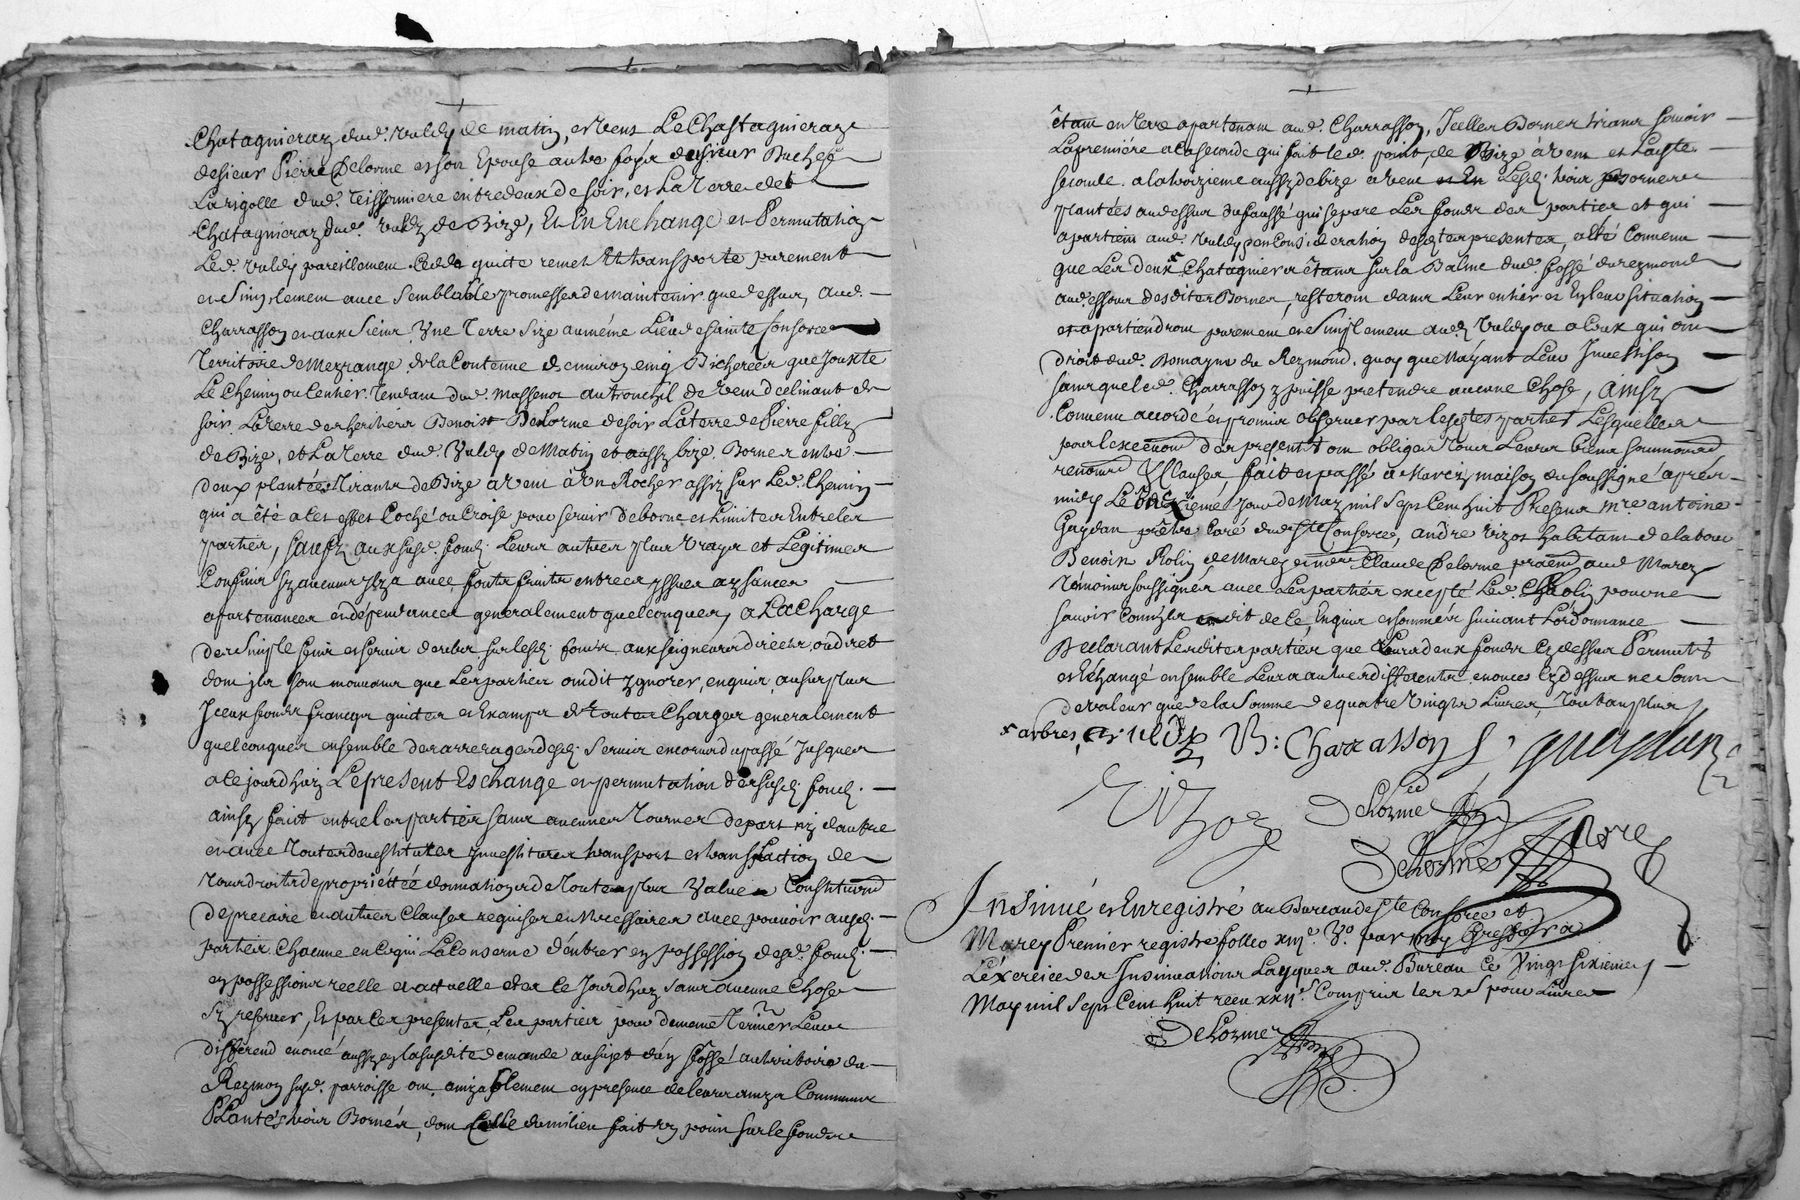 Chatagnieraz dud. Valdy de matin, et vent Le Chastagnieraz
de sieur Pierre Delorme et son Epouse autre foys de sieur Buchet
La rigolle dud. Teissonniere entredeux de soir, et La Terre et
Chatagnieraz dud. Valdy de Bize, Et En Enchange et Permutation
Led. Valdy pareillement Cedde quitte remet Et transporte purement
et Simplement avec Semblables promesses de maintenir que dessus, aud.
Charrasson et aux Siens Une Terre Size au même Lieu de sainte Consorce
Territoire de Mezrange de la Contenue d'environ cinq Bicherées que Jouxte
Le Chemin ou Sentier Tendant dud. Massenot au Tronchil de vent declinant de
soir La Terre des heritiers Benoist Delorme de soir La terre de Pierre filly
de Bize, et La Terre dud. Valdy de Matin et aussy bize. Bornes entre
deux plantées Tirants de Bize à vent à Un Rocher assis sur Led. Chemin
qui a été a cet effet Coché ou Croisé pour servir de borne et Limites Entre les
parties, sauf aux susd. fonds Leurs autres plus Vrays et Legitimes
Confins sy aucuns y en a avec fonts fruits entrées yssues aysances
apartenances et dépendances generalement quelconques, a La Charge
de simple cens et servis deubs sur lesd. fonds aux seigneurs directs ou dret
dont ils sont mouvants que Les parties ont dit ygnorer, enquis, au surplus
Iceux fonds francqs quittes et Exampts de Toutes Charges generalement
quelconques ensemble des arrerages desd. Servis encourus du passé Jusques
a ce jourd'huy Le present Eschange et permutation desusd. fonds
ainsy fait entre les parties sans aucunes Tournes de part ny d'autre
et avec Toutes devestitures Investitures transport et translaction de
Tous droits de propriétté donnation de Toute plus Value Constitution
de precaire et autres Clauses requises et Necessaires avec pouvoir ausd.
parties Chacune en ce qui La Conserne d'entrer en possession desd. fonds
en possession reelle et actuelle dez ce Jourd'huy sans aucune Chose
sy reserver, Et par ces presentes Les parties pour de même Terminer Leur
different enoncé aussy en la susdite demande au sujet d'un fossé au territoire du
Reymon susd. parroisse ont amiablement en presence de leurs amys Communs
Planté trois Bornes, dont Celle du milieu fait un point sur le fonds
étant en Terre apartenant aud. Charrasson, Icelles Bornes tirants sçavoir
La premiére a la seconde qui fait led. point, de Bize à vent et Lad.
seconde a la troizieme aussy de bize a vent Lesd. trois Bornes
plantées au dessus du fossé qui separe Les fonds des parties et qui
apartient aud. Valdy en Consideration desdites presentes, a été Convenu
que Les deux Chatagniers étants sur la Balme dud. fossé du reymond
au dessous desdites Bornes, resteront dans Leur entier et En leur situation
et apartiendront purement et simplement aud. Valdy ou a Ceux qui ont
droit dud. Domayne du Reymond, quoy que N'ayant Leur Investison
sans que led. Charrasson y puisse pretendre aucune Chose, ainsy
Convenu accordé et promis observer par lesdites parties Lesquelles
pour l'execution des presentes ont obligés Tous Leurs biens soumission
renonciation & Clauses, fait et passé à Marcy maison du soussigné aprés
midy Le jour de May mil Sept Cent huit Presens Mre. antoine
Gaydan prêtre Curé dud. Ste Consorce, andré Vizoz habitant de la tour
Benoist Rolin de Marcy et me Claude Delorme praticien aud. Marcy
Témoins soussignés avec Les parties excepté Led. Rolin pour ne
savoir Comm'il a dit de Ce, Enquis et sommés suivant L'ordonnance
Declarant Lesdites parties que Leurs deux fonds Cy dessus Permutés
et Echangé ensemble Leurs autres differents enoncés Cy dessus ne sont
de valeur que de la somme de quatre Vingts Livres, Tout au plus
+ arbres, V: Charrasson
Vizoz Delorme
Delorme Nore
Insinué et Enregistré au Bureau de Ste Consorce et
Marcy Premier registre folleo xiije. Vo. par moy
L'exercice des Insinuations Layques aud. Bureau Ce Vingt sixieme
May mil Sept Cent huit receu Compris les pour Livres
Delorme